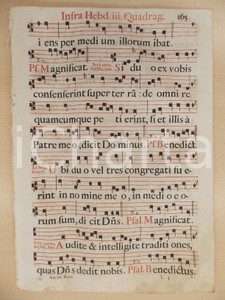 Infra Hebd. iii. Quadrag. 165
iens per medium illorum ibat.
Ps. Magnificat. Si duo ex vobis
consenserint super terrã: de omni re
quamcumque petierint, fiet illis à
Patre meo, dicit Dominus. Ps. Benedict.
Ubi duo vel tres congregati fue-
rint in nomine meo, in medio eo-
rum sum, dicit Dñs. Psal. Magnificat.
Audite & intelligite traditiones,
quas Dñs dedit nobis. Psal. Benedictus.